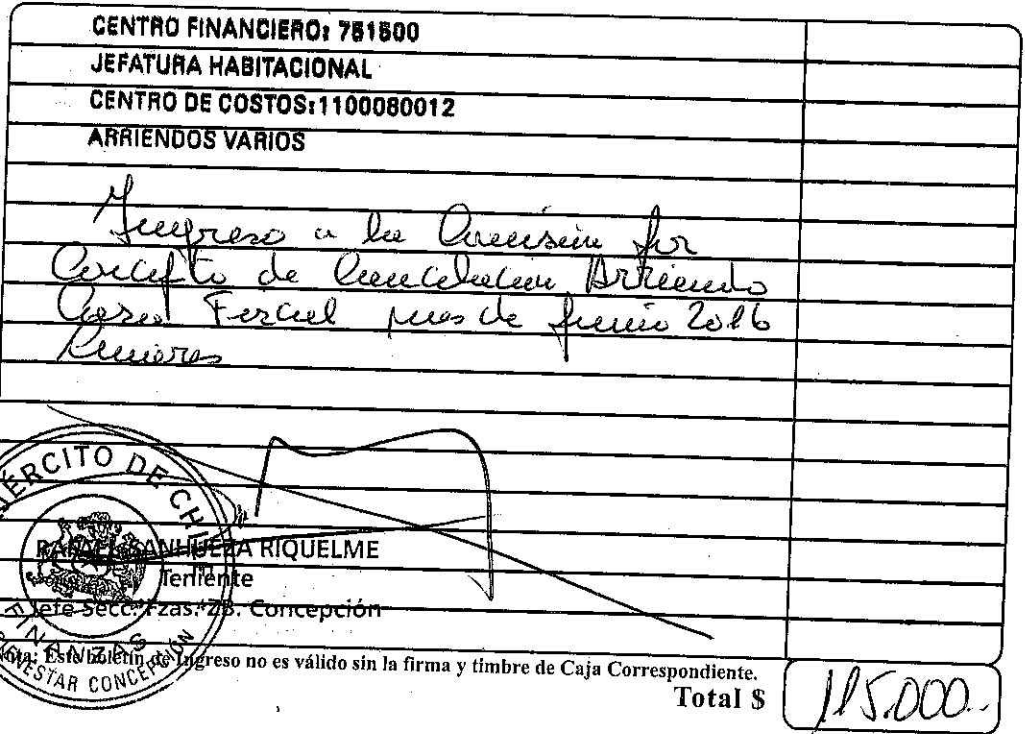 CENTRO FINANCIERO: 751500
JEFATURA HABITACIONAL
CENTRO DE COSTOS:1100080012
ARRIENDOS VARIOS
Ingreso a la Comisión por
Concepto de Cancelación Arriendo
Casa Fiscal mes de Junio 2016
Linares
EJÉRCITO DE CHILE
RAFAEL SANHUEZA RIQUELME
Teniente
Jefe Secc. Fzas. ZB. Concepción
FINANZAS
BIENESTAR CONCEPCIÓN
Nota: Este boletín de Ingreso no es válido sin la firma y timbre de Caja Correspondiente.
Total $ 115.000.-